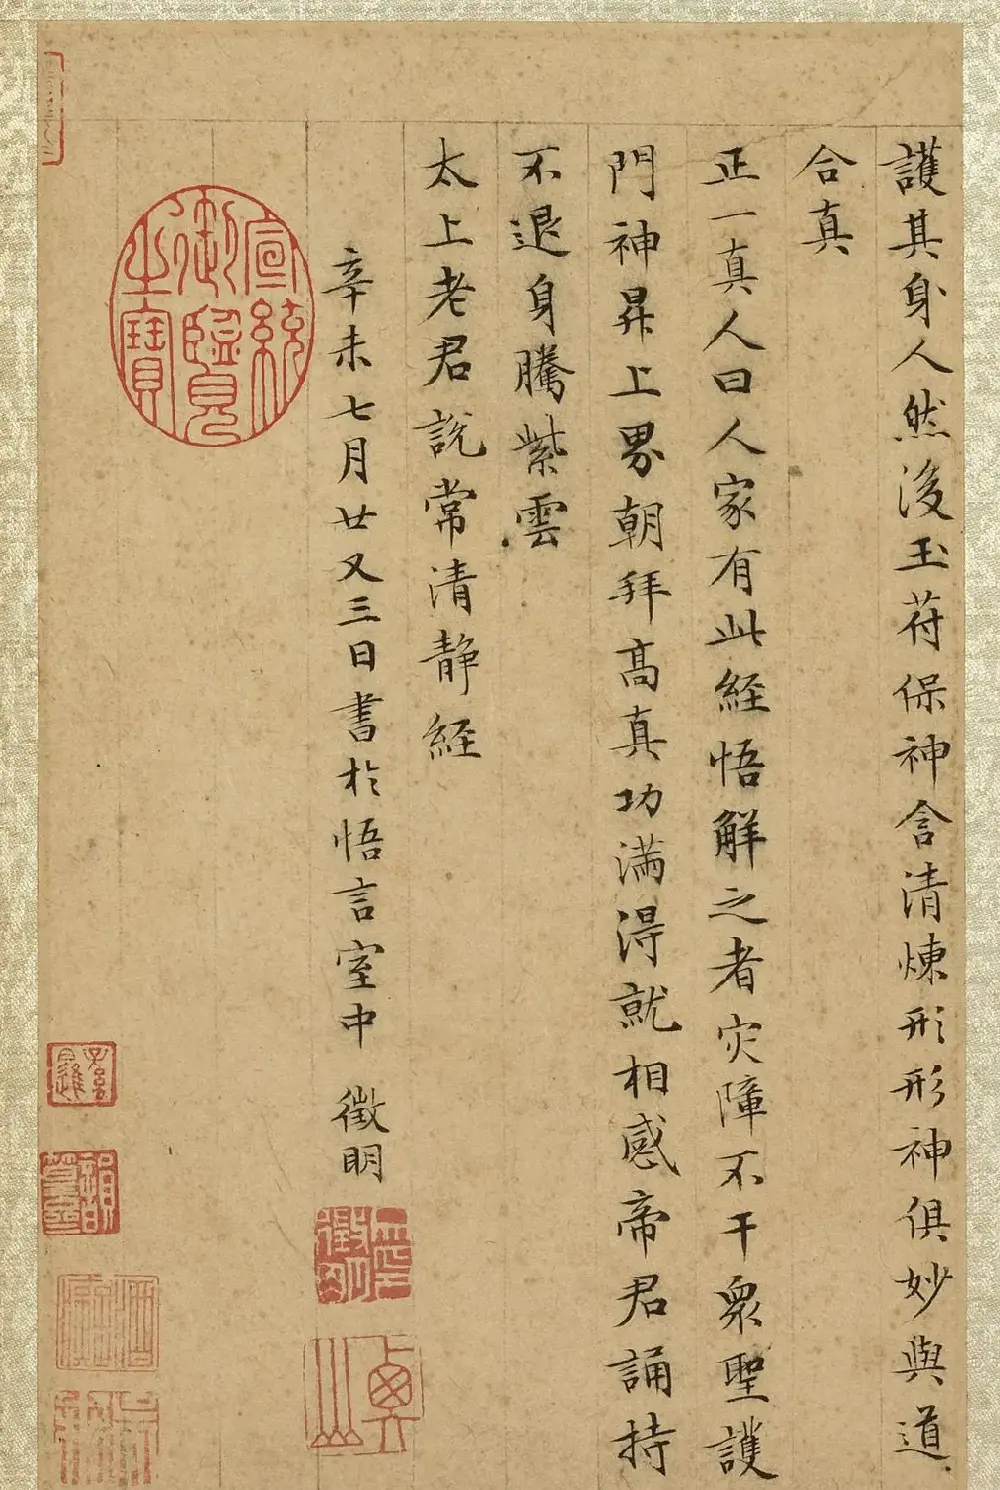 護其身人然後玉苻保神含清煉形形神俱妙與道
合真
正一真人曰人家有此經悟解之者灾障不干衆聖護
門神昇上界朝拜高真功滿得就相感帝君誦持
不退身騰紫雲
太上老君說常清静經
辛未七月廿又三日書於悟言室中 徵明
徵明
宣統御覽之寶